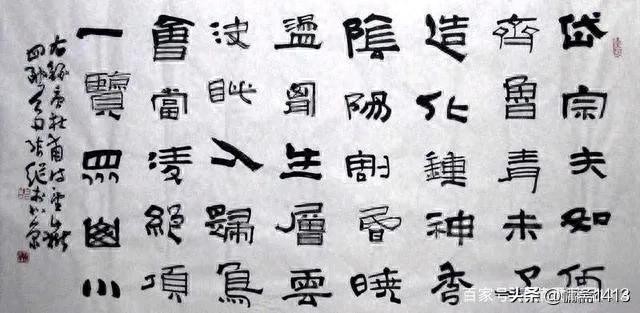 岱宗夫如何
齊魯青未了
造化鍾神秀
陰陽割昏曉
盪胷生層雲
決眥入歸鳥
會當淩絕頂
一覽眾山小
右錄唐杜甫詩望嶽
百家号
头条 1413